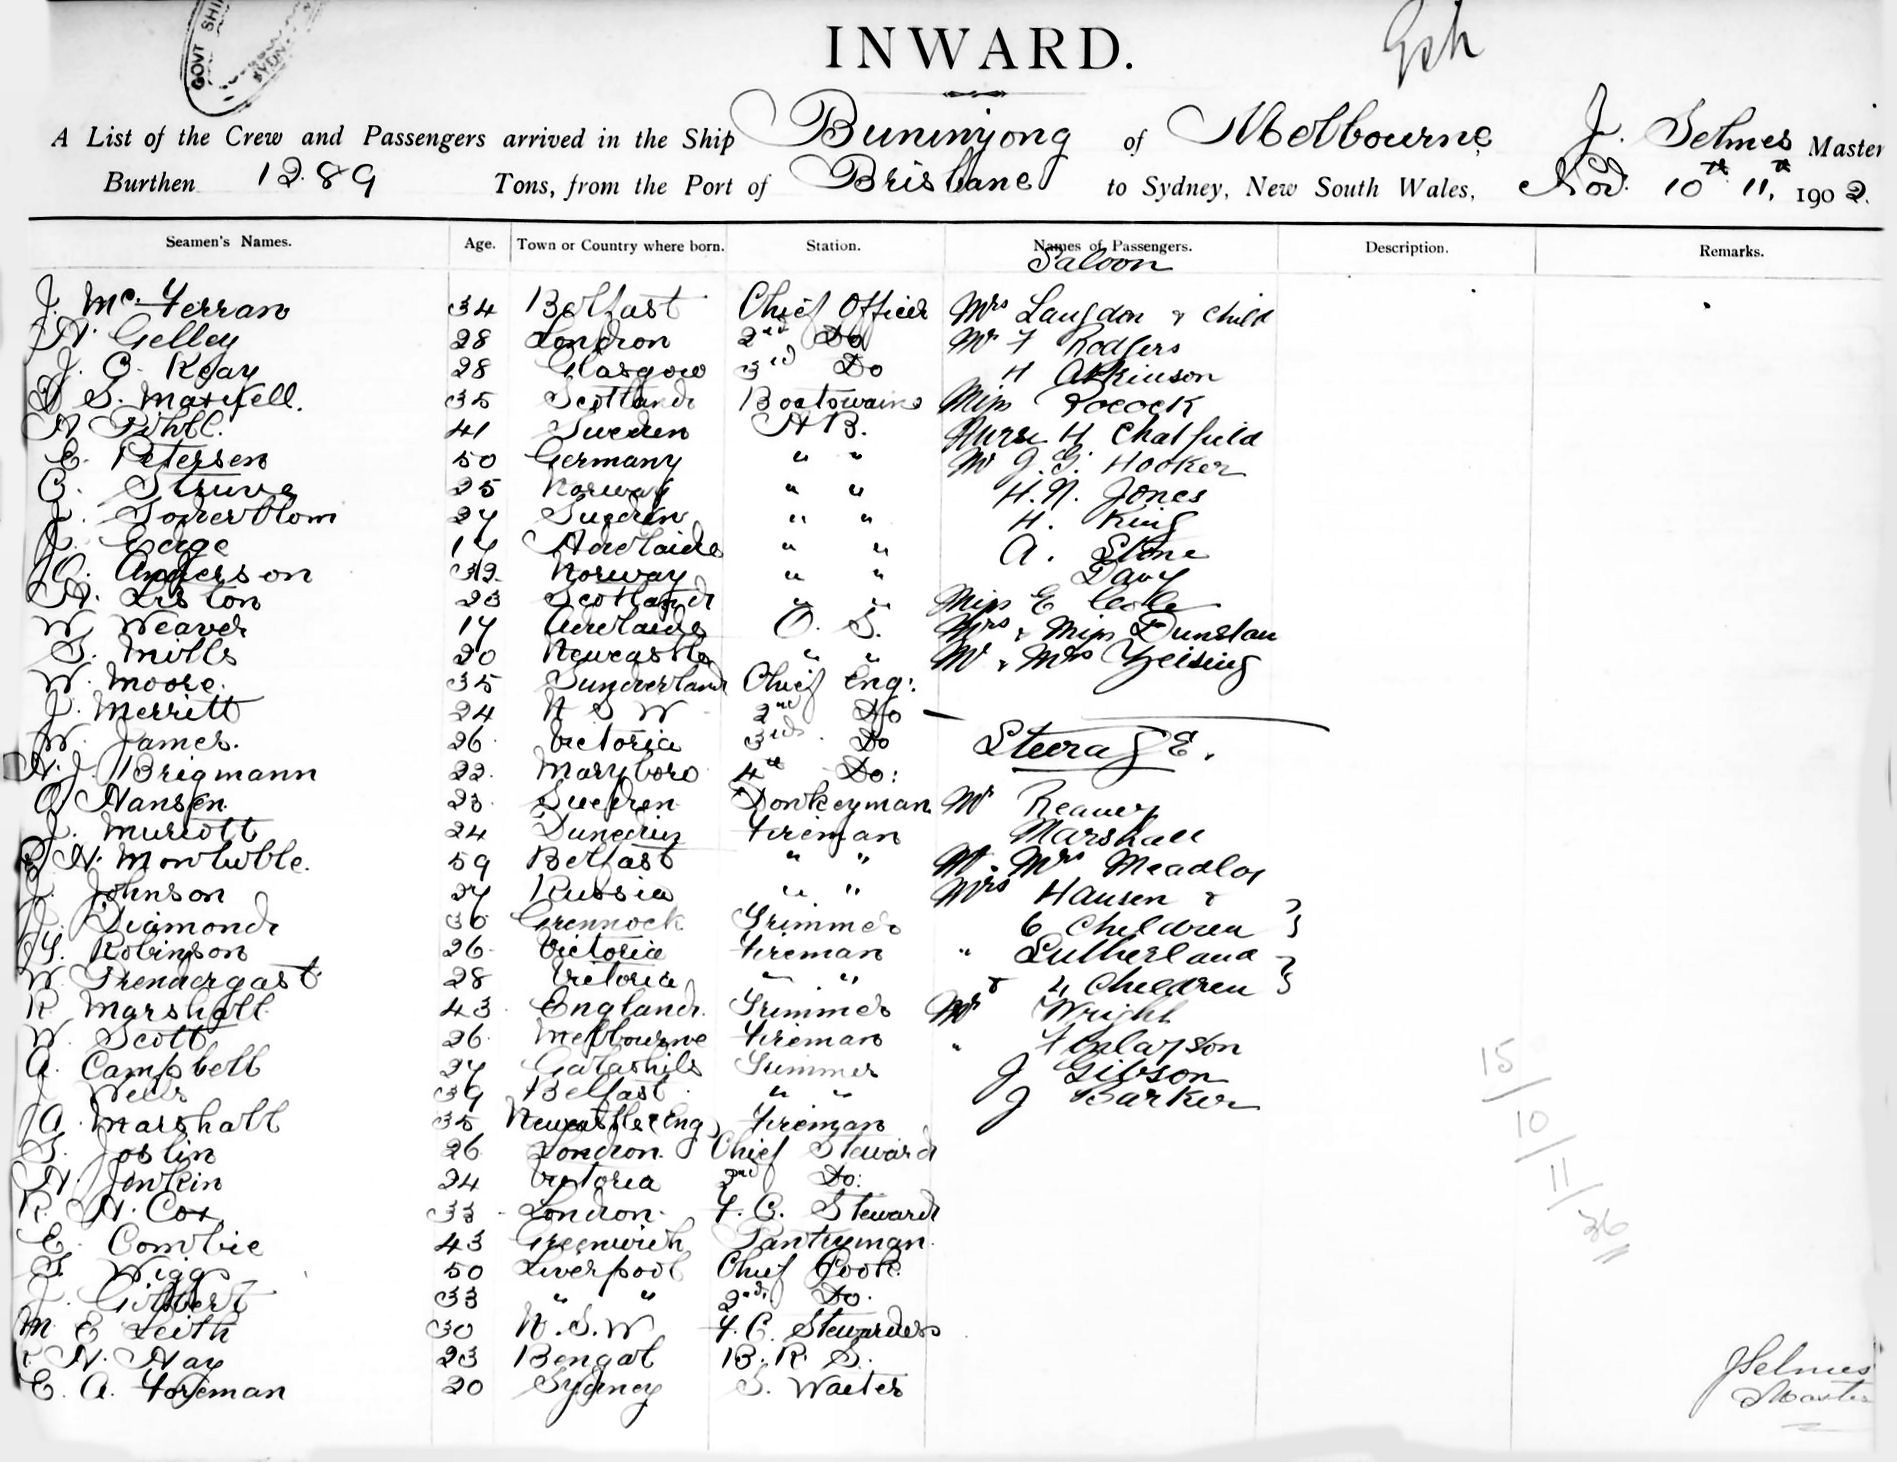 GOVT SHI
SYDN
INWARD.
A List of the Crew and Passengers arrived in the Ship Buninyong of Melbourne J. Selmes Master
Burthen 1289 Tons, from the Port of Brisbane to Sydney, New South Wales, Nov. 10th 11th, 1902.
Seamen's Names. Age. Town or Country where born. Station. Names of Passengers. Description. Remarks.
Saloon
J. McFerran 34 Belfast Chief Officer Mrs Langdon & Child
H. Gelley 28 London 2nd Do Mr F Rodgers
J. C. Keay 28 Glasgow 3rd Do H Atkinson
S. Maxwell. 35 Scotland Boatswains Miss Pocock
A Pihll. 41 Sweden A B. Nurse H Chatfield
C. Petersen 50 Germany " " Mr J. G. Hooker
C. Struve 25 Norway " " H. N. Jones
J. Soderblom 27 Sweden " " H. King
J. Edge 17 Adelaide " " A. Stone
O. Anderson 32 Norway " " Davy
A. Liston 23 Scotland " " Miss E Cole
W. Weaver 17 Adelaide O. S. Mrs & Miss Dunstan
S. Mills 20 Newcastle " " Mr & Mrs Yeising
W. Moore. 35 Sunderland Chief Eng:
J. Merritt 24 N S W 2nd Do
W. James. 26 Victoria 3rd Do SteeragE.
H. J. Brigmann 22 Maryboro 4th Do:
O Hansen 23 Sweden Donkeyman Mr Reaney
J. Murcott 24 Dunedin Fireman Marshall
H. Mowbuble. 59 Belfast " " Mr. Mrs Meadlos
J. Johnson 27 Russia " " Mrs Hansen &
J. Diamond 36 Grennock Trimmer 6 Children }
Robinson 26 Victoria Fireman " Sutherland
W. Prendergast 28 Victoria " " & 4 Children }
R Marshall 43 England. Trimmer Mr Wright
W. Scott 26 Melbourne Fireman " Finlayson
A. Campbell 27 Galashils Trimmer J Gibson
J Wells 39 Belfast " " J Barker
A. Marshall 35 Newcastle (Eng) Fireman
S. Joslin 26 London. Chief Steward
H Jenkin 24 Victoria 2nd Do:
R. H. Cox 33 London. F. C. Steward
E. Combie 43 Greenwich Pantryman.
Wigg 50 Liverpool Chief Cook.
J. Gilbert 33 " " 2nd Do.
M E Leith 30 N. S. W F. C. Stewardess
H. Hay 23 Bengal B. R. S.
E. A. Foreman 20 Sydney S. Waiter
15/
10/
11/
36
JSelmes
Master